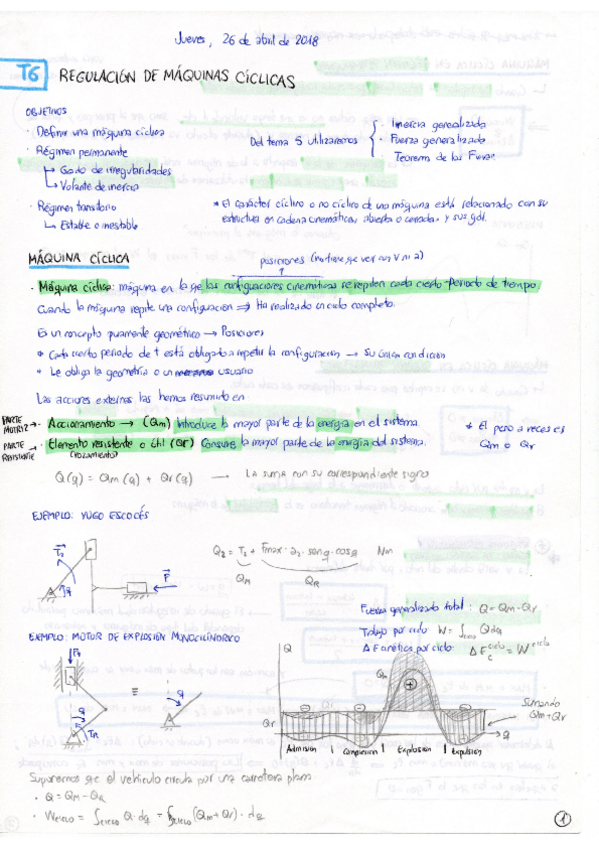 Jueves, 26 de abril de 2018
T6 REGULACIÓN DE MÁQUINAS CÍCLICAS
OBJETIVOS
· Definir una máquina cíclica
· Régimen permanente
↳ Grado de irregularidades
↳ Volante de inercia
· Régimen transitorio
↳ Estable o inestable
Del tema 5 utilizaremos
· Inercia generalizada
· Fuerza generalizada
· Teorema de las Fuerzas
* El carácter cíclico o no cíclico de una máquina está relacionado con su
estructura en cadena cinemática, abierta o cerrada, y sus gdl.
MÁQUINA CÍCLICA
posiciones (no tiene que ver con v ni a)
· Máquina cíclica: máquina en la que las configuraciones cinemáticas se repiten cada cierto periodo de tiempo
Cuando la máquina repite una configuración ⇒ Ha realizado un ciclo completo.
Es un concepto puramente geométrico → Posiciones
* Cada cierto periodo de t está obligado a repetir la configuración → Su única condición
* Le obliga la geometría o un usuario
Las acciones externas las hemos resumido en
PARTE MOTRIZ → · Accionamiento → (Qm) Introduce la mayor parte de la energía en el sistema
PARTE RESISTENTE → · Elemento resistente o útil (Qr) Consume la mayor parte de la energía del sistema.
(rozamiento)
* El peso a veces es
Qm o Qr
Q(q) = Qm(q) + Qr(q) → LA SUMA CON SU CORRESPONDIENTE SIGNO
EJEMPLO: YUGO ESCOCÉS
Qm
QR
Nm
Fuerza generalizada total: Q = Qm - Qr
Trabajo por ciclo: W = ∫ciclo Q dq
Δ E cinética por ciclo: ΔEc ciclo = W ciclo
EJEMPLO: MOTOR DE EXPLOSIÓN MONOCILÍNDRICO
Q
Qm
Qr
Sumando
Qm + Qr
Admisión | Compresión | Explosión | Expulsión
Suponemos que el vehículo circula por una carretera plana
· Q = Qm - QR
· Wciclo = ∫ciclo Q · dq = ∫ciclo (Qm + Qr) · dq
1